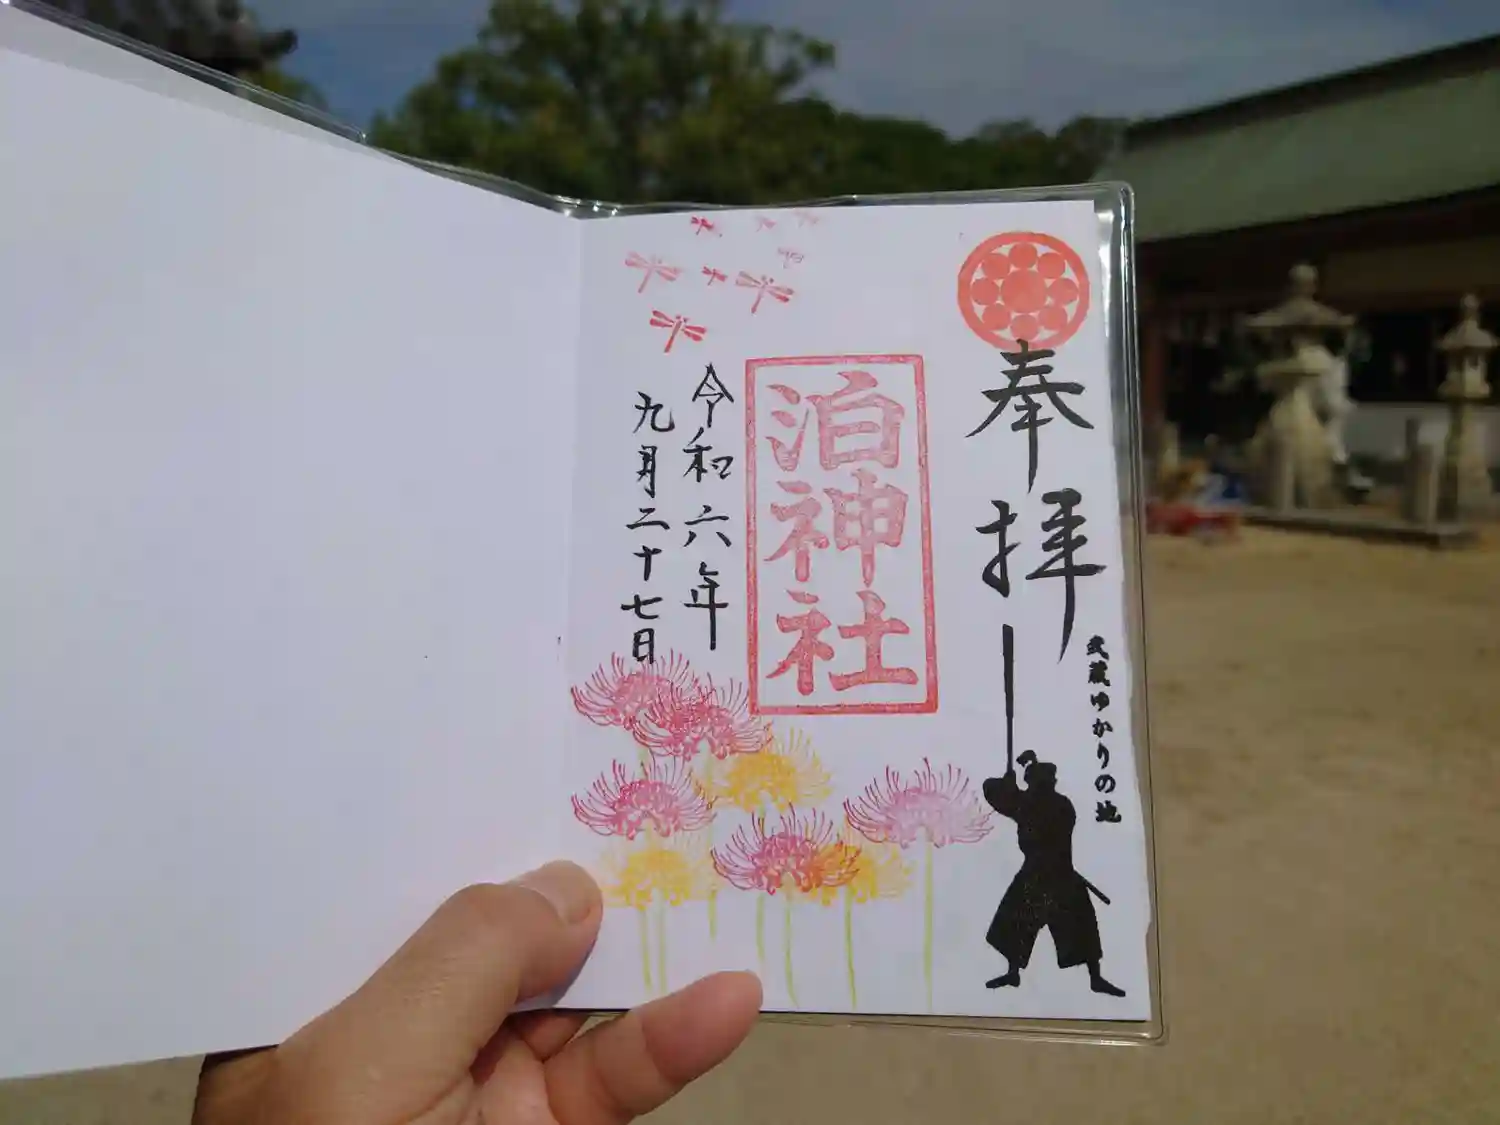 奉拝
武蔵ゆかりの地
泊神社
令和六年
九月二十七日